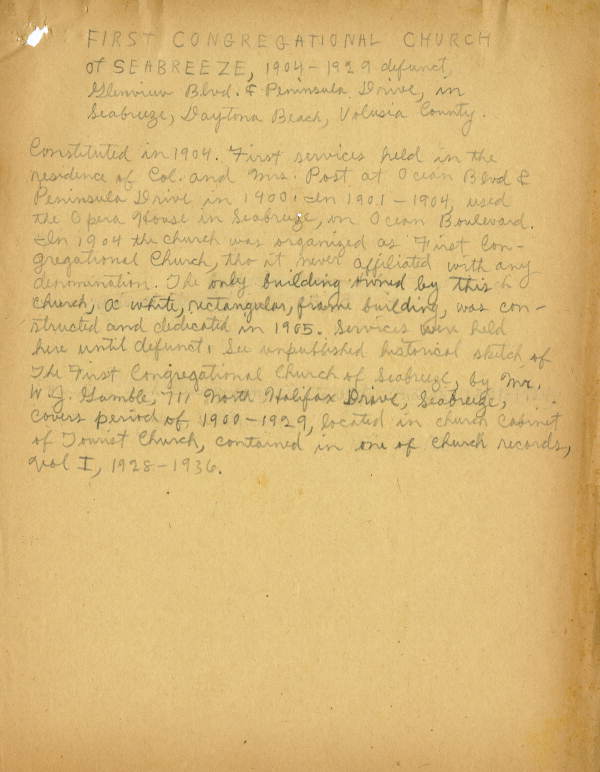 FIRST CONGREGATIONAL CHURCH
of SEABREEZE, 1904-1929 defunct,
Glenview Blvd. & Peninsula Drive, in
Seabreeze, Daytona Beach, Volusia County.
Constituted in 1904. First services held in the
residence of Col. and Mrs. Post at Ocean Blvd &
Peninsula Drive in 1900. In 1901-1904, used
the Opera House in Seabreeze, on Ocean Boulevard.
In 1904 the church was organized as First Con-
gregational Church, tho it never affiliated with any
denomination. The only building owned by this
church, a white, rectangular, frame building, was con-
structed and dedicated in 1905. Services were held
here until defunct. See unpublished historical sketch of
The First Congregational Church of Seabreeze, by Mr.
W. J. Gamble, 711 North Halifax Drive, Seabreeze,
covers period of 1900-1929, located in church cabinet
of Tourist Church, contained in one of church records,
vol I, 1928-1936.